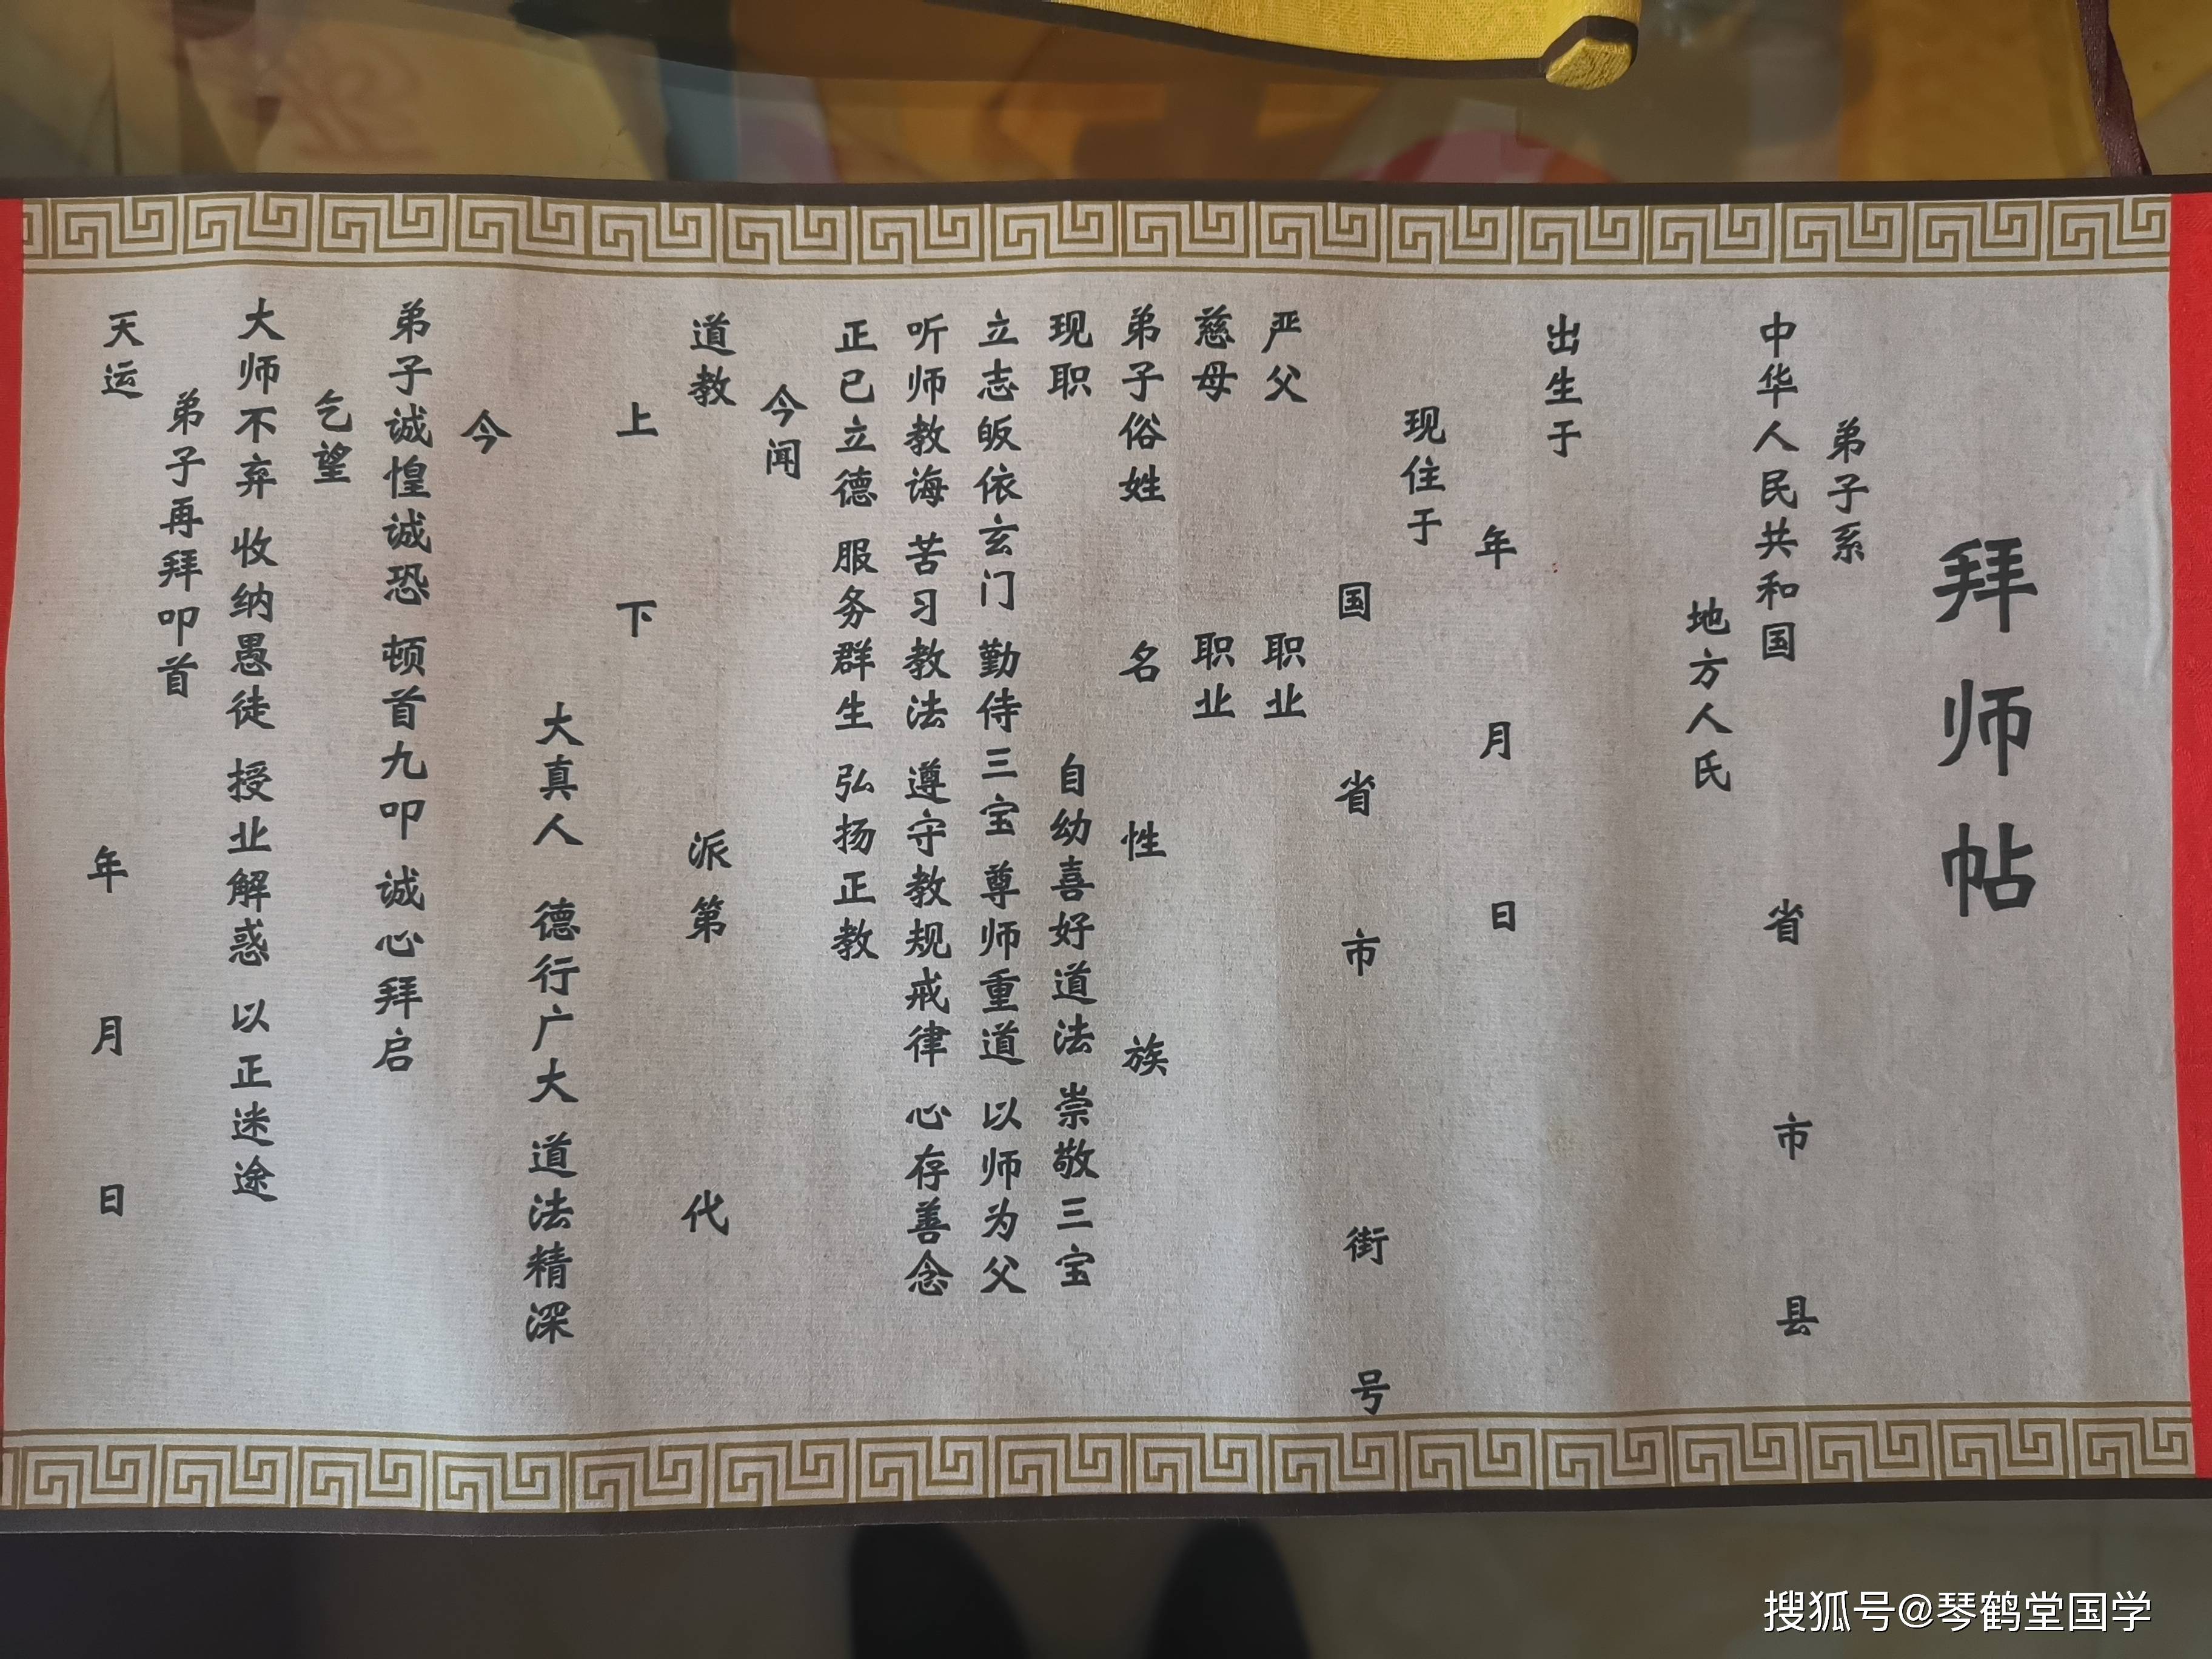 拜师帖
弟子系
中华人民共和国 省 市 县
地方人氏
出生于
年 月 日
现住于
国 省 市 街 号
严父 职业
慈母 职业
弟子俗姓 名 性 族
现职 自幼喜好道法 崇敬三宝
立志皈依玄门 勤侍三宝 尊师重道 以师为父
听师教诲 苦习教法 遵守教规戒律 心存善念
正已立德 服务群生 弘扬正教
今闻
道教 派第 代
上 下
大真人 德行广大 道法精深
今
弟子诚惶诚恐 顿首九叩 诚心拜启
乞望
大师不弃 收纳愚徒 授业解惑 以正迷途
弟子再拜叩首
天运 年 月 日
搜狐号@琴鹤堂国学